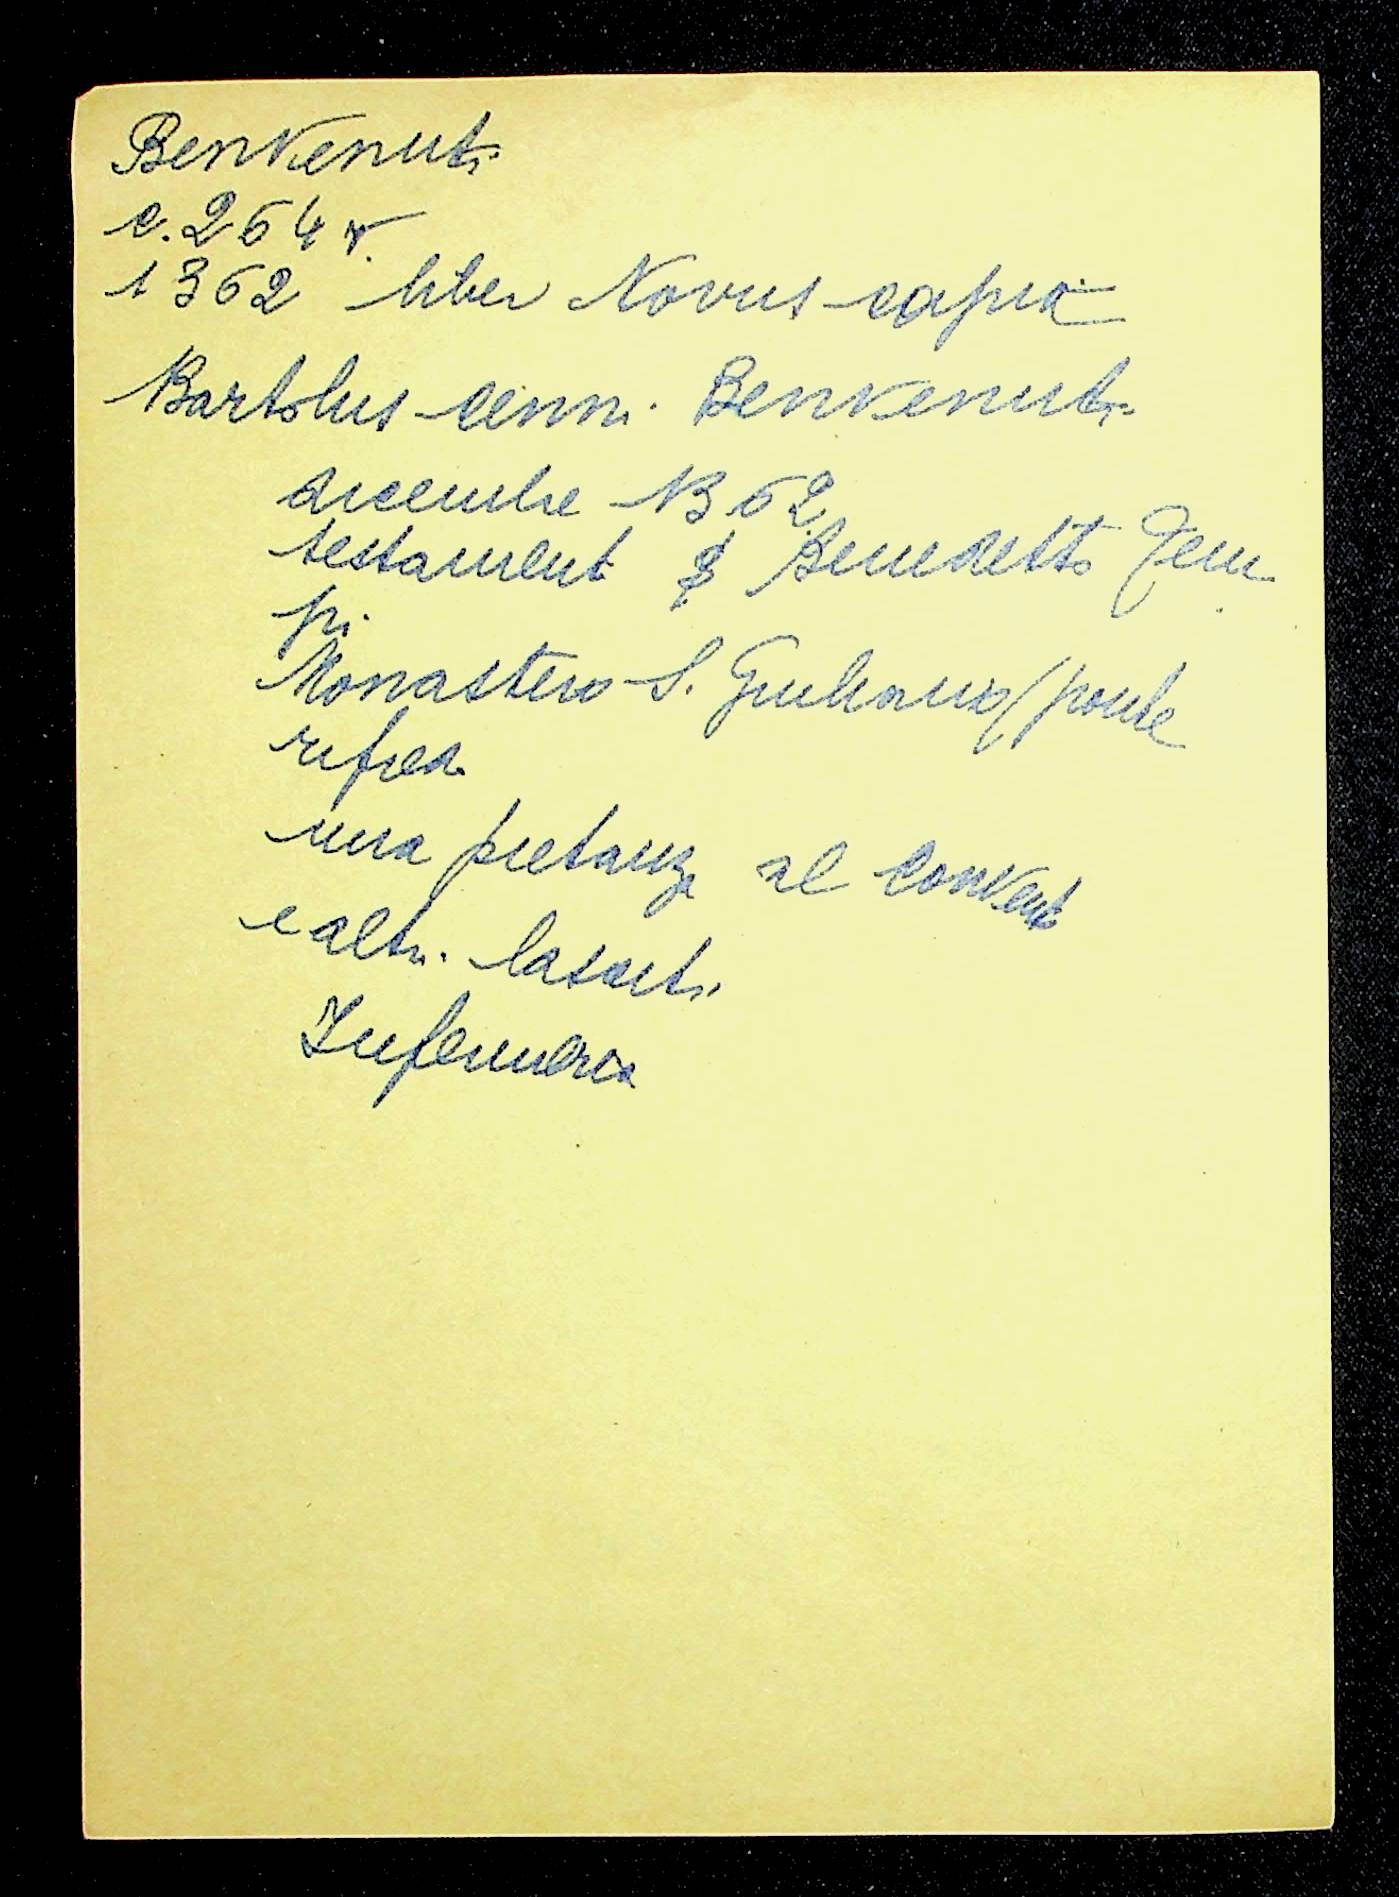 Benvenuti
c. 264 r.
1362 liber Novus capia
Bartolus Cenni Benvenuti
dicembre 1362
testament d Benedetto Tem
pi.
Monastero S. Giuliano / ponte
rifred.
una pietanz al Convent
e altri lasciti
Infermeria